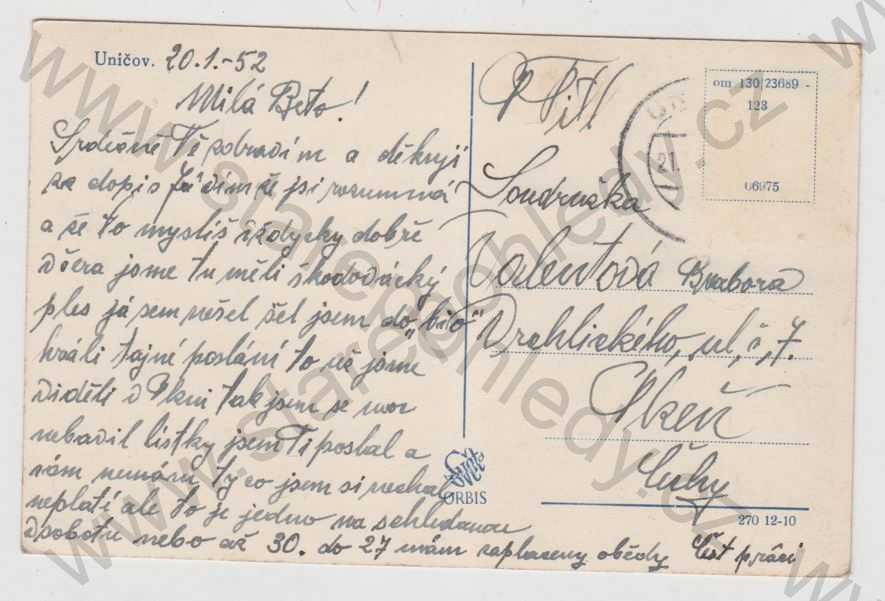 Uničov. 20.1.-52
Milá Beto!
Srdečně Tě pozdravím a děkuji
za dopis vidím že jsi rozumná
a že to myslíš vždycky dobře
včera jsme tu měli škodovácký
ples já sem nešel šel jsem do „bia"
hráli tajné poslání to už jsme
viděli v Plzni tak jsem se moc
nebavil lístky jsem Ti poslal a
sám nemám ty co jsem si nechal
neplatí ale to je jedno na schledanou
v sobotu nebo až 30. do 27 mám zaplaceny obědy Čest práci
Soudružka
Valentová Barbora
Vrchlického, ul, č, 7.
Plzeň
om 130 23689 -
123
06975
21.
Svět
ORBIS
270 12-10
www.starepohledy.cz